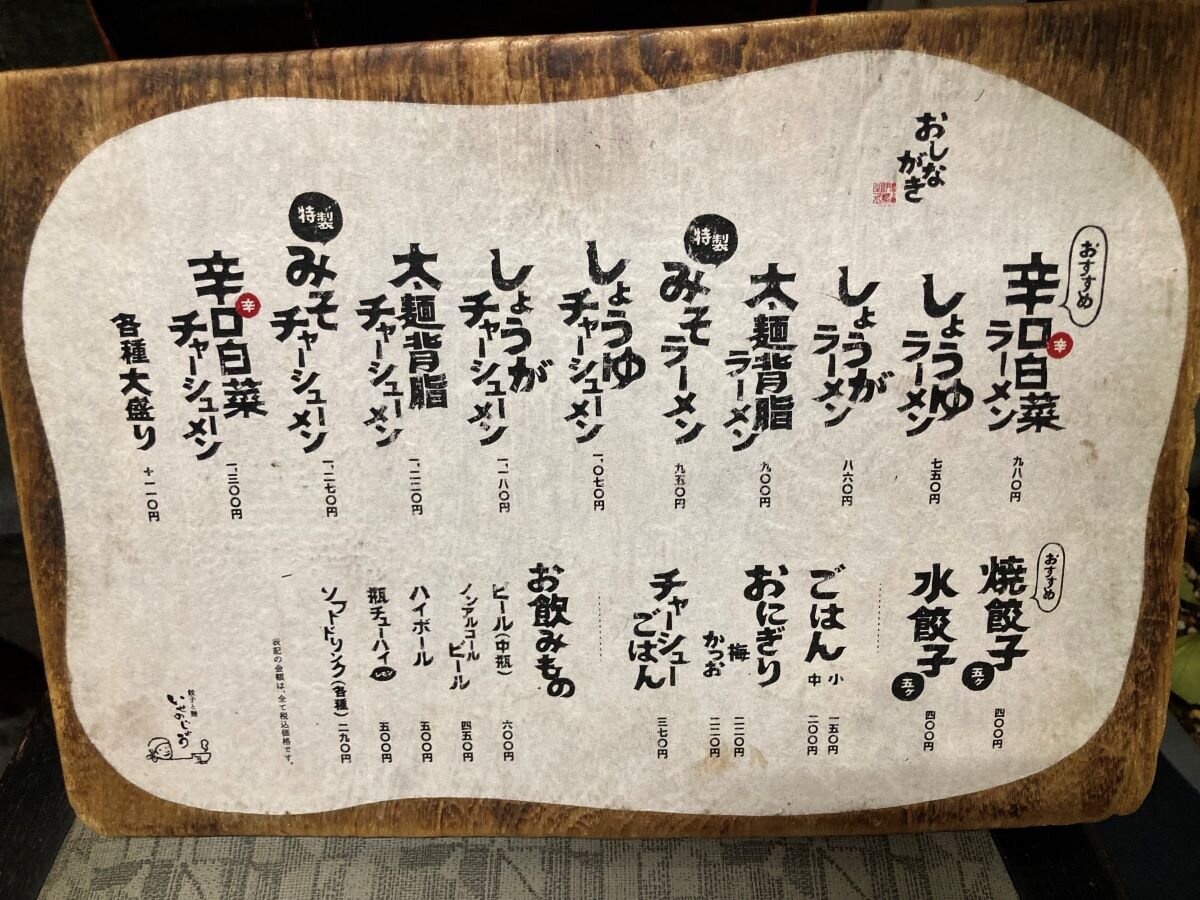 おしながき
おすすめ
辛口白菜ラーメン
辛
九八〇円
しょうゆラーメン
七五〇円
しょうがラーメン
八六〇円
太麺背脂ラーメン
九〇〇円
特製
みそラーメン
九五〇円
しょうゆチャーシューメン
一、〇七〇円
しょうがチャーシューメン
一、一八〇円
太麺背脂チャーシューメン
一、二二〇円
特製
みそチャーシューメン
一、二七〇円
辛口白菜チャーシューメン
辛
一、三〇〇円
各種大盛り
+一一〇円
おすすめ
焼餃子 五ヶ
四〇〇円
水餃子 五ヶ
四〇〇円
ごはん
小 一五〇円
中 二〇〇円
おにぎり
梅 二二〇円
かつお 二二〇円
チャーシューごはん
三七〇円
お飲みもの
ビール(中瓶) 六〇〇円
ノンアルコールビール 四五〇円
ハイボール 五〇〇円
瓶チューハイ レモン 五〇〇円
ソフトドリンク(各種) 二九〇円
表記の金額は、全て税込価格です。
餃子と麺
いせのじょう